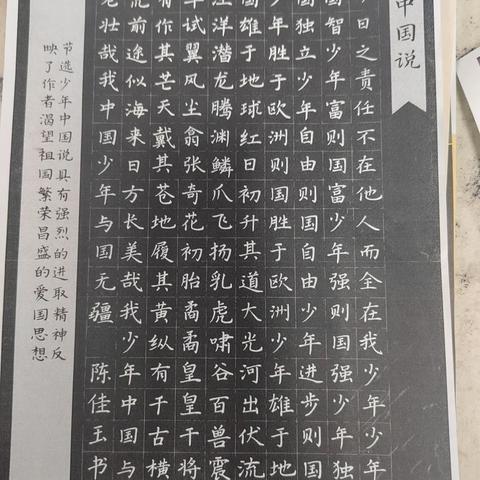 中国说
日之责任不在他人而全在我少年少年
国智少年富则国富少年强则国强少年独
国独立少年自由则国自由少年进步则国
年胜于欧洲则国胜于欧洲少年雄于地
国雄于地球红日初升其道大光河出伏流
洋潜龙腾渊鳞爪飞扬乳虎啸谷百兽震
试翼风尘翕张奇花初胎矞矞皇皇干将
有作其芒天戴其苍地履其黄纵有千古横
前途似海来日方长美哉我少年中国与
壮哉我中国少年与国无疆 陈佳玉书
节选少年中国说具有强烈的进取精神反
映了作者渴望祖国繁荣昌盛的爱国思想